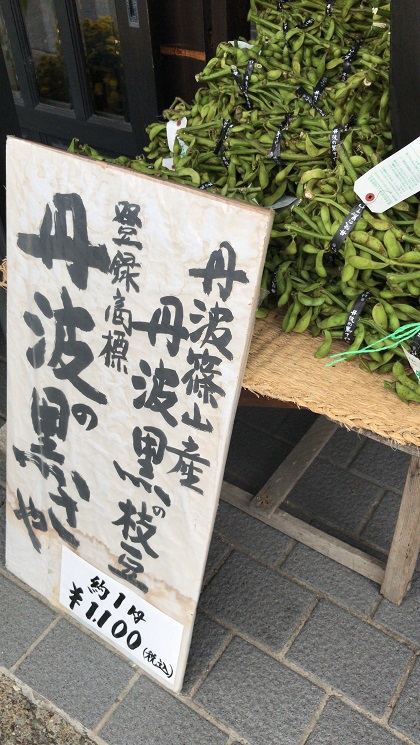 丹波篠山産
丹波黒の枝豆
登録商標
丹波の黒さや
約1kg
¥1,100(税込)